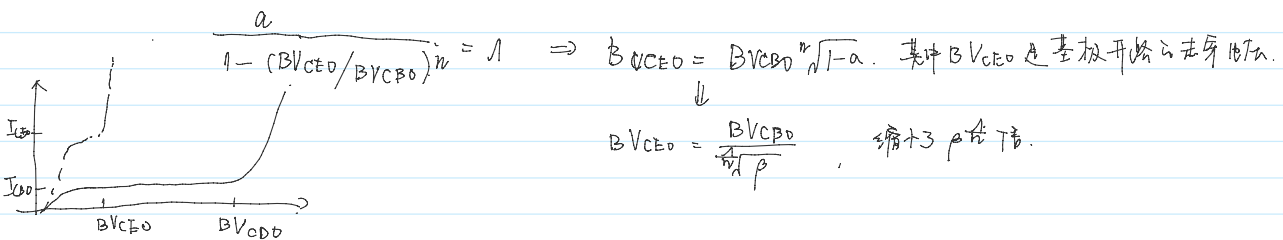 a / (1 - (BVCEO/BVCBO)^n) = 1 ⇒ BVCEO = BVCBO ⁿ√(1-a). 其中BVCEO是基极开路的击穿电压.
⇓
BVCEO = BVCBO / ⁿ√β , 缩小了 β^(1/n) 倍.
ICEO
ICBO
BVCEO BVCDO